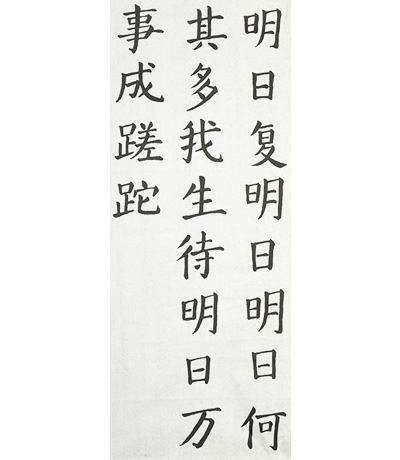 明日复明日明日何
其多我生待明日万
事成蹉跎